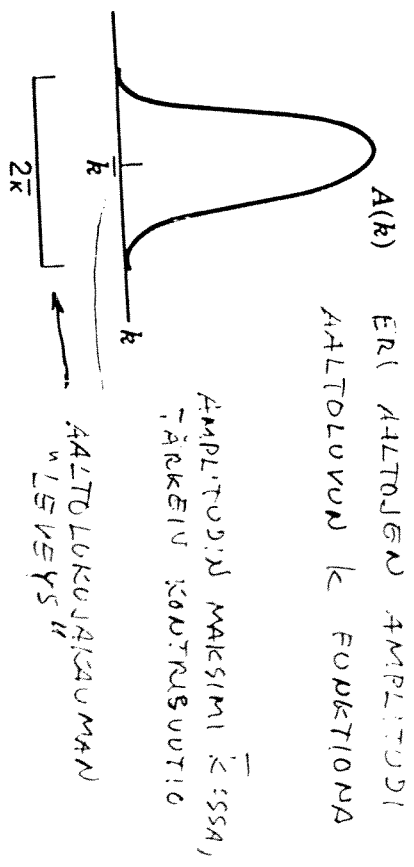 A(k)
ERI AALTOJEN AMPLITUDI
AALTOLUVUN k FUNKTIONA
k̄
k
2κ̄
AMPLITUDIN MAKSIMI k̄:SSA,
TÄRKEIN KONTRIBUUTIO
AALTOLUKUJAKAUMAN
"LEVEYS"